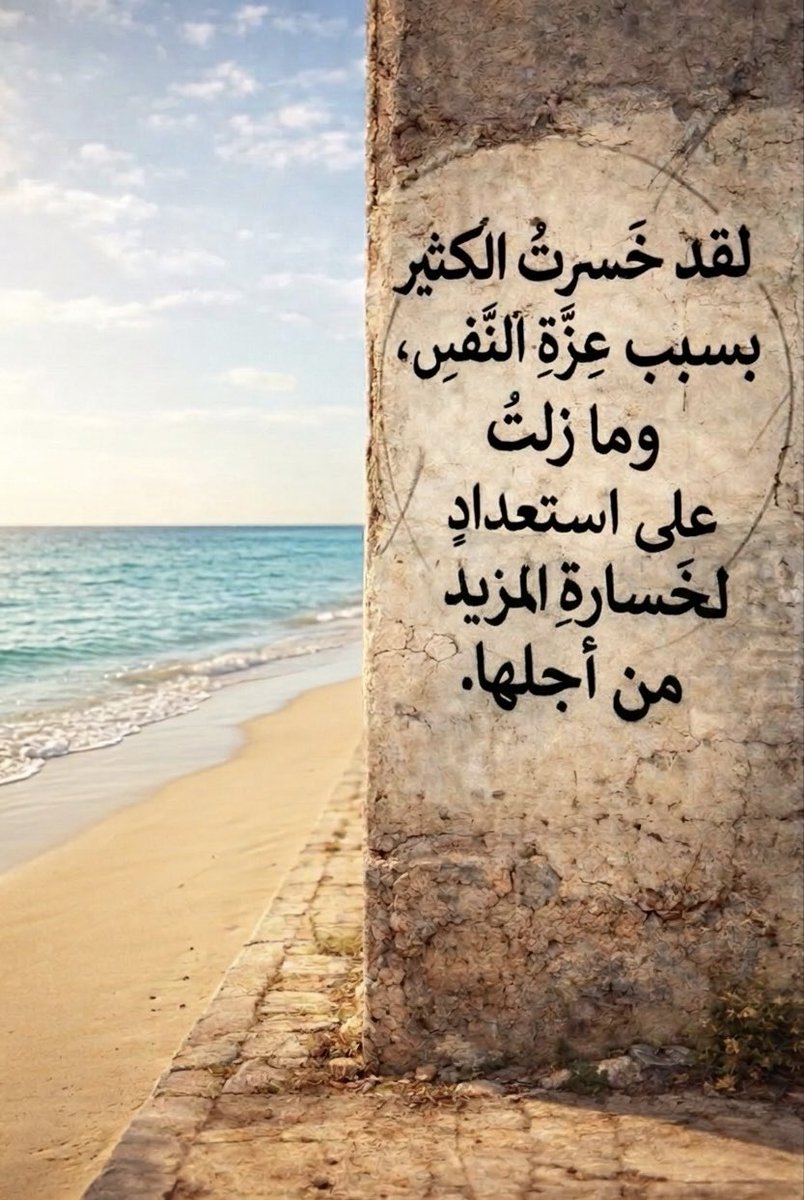 لقد خَسرتُ الكثير
بسبب عِزَّةِ النَّفسِ،
وما زلتُ
على استعدادٍ
لخَسارةِ المزيد
من أجلها.